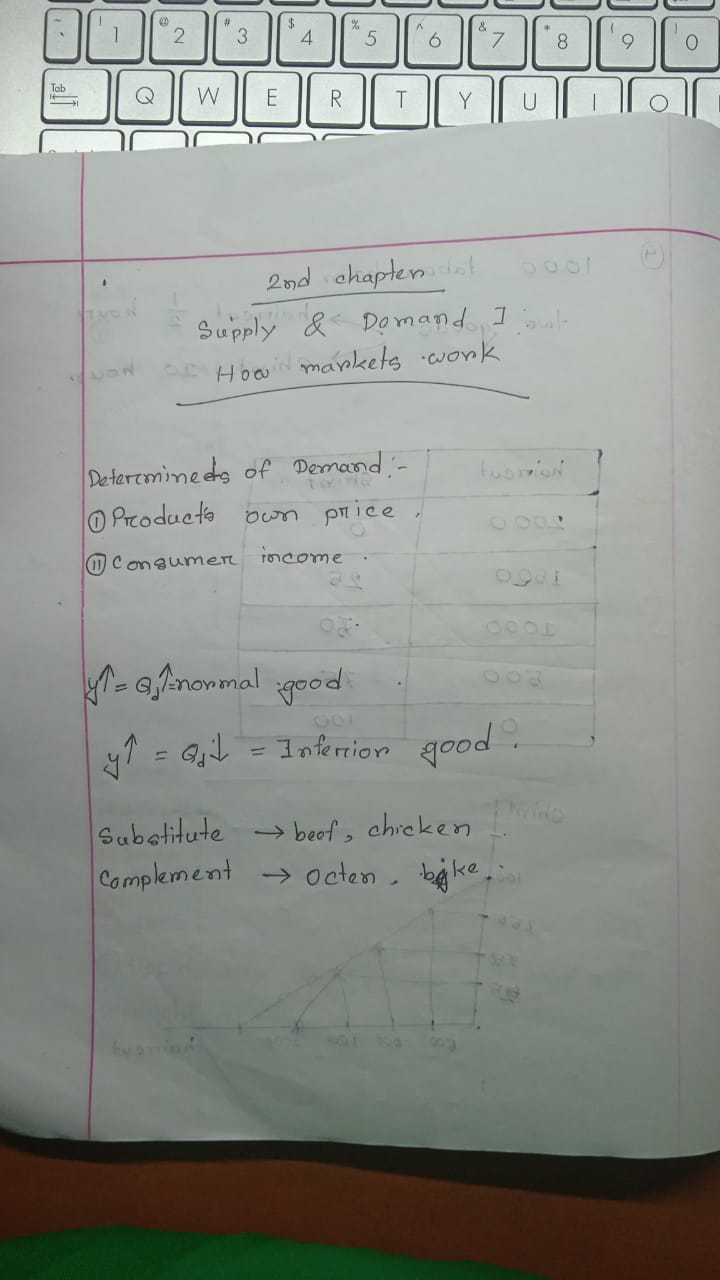 ~ ` ! 1 @ 2 # 3 $ 4 % 5 ^ 6 & 7 * 8 ( 9 ) 0
Tab Q W E R T Y U I O
2nd chapter
Supply & Demand I :
How markets work
Determineds of Demand :-
① Product's own price ,
② Consumer income .
y↑ = Qd↑ = normal good .
y↑ = Qd↓ = Inferior good .
Substitute → beef, chicken .
Complement → octen , bike .